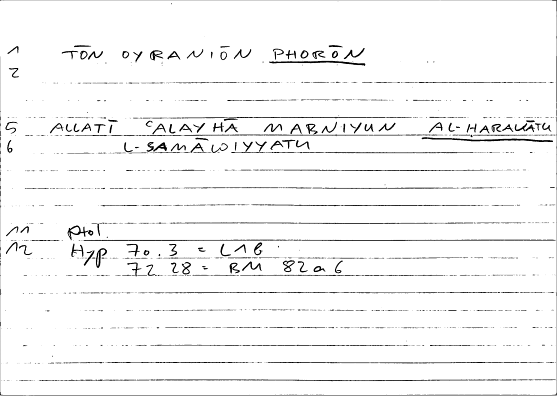 1 TŌN OYRANIŌN PHORŌN
2
5 ALLATĪ ʿALAYHĀ MABNIYUN AL-HARAKĀTU
6 L-SAMĀWIYYATU
11 Ptol
12 Hyp 70.3 = L1B
72 28 = BM 82a6